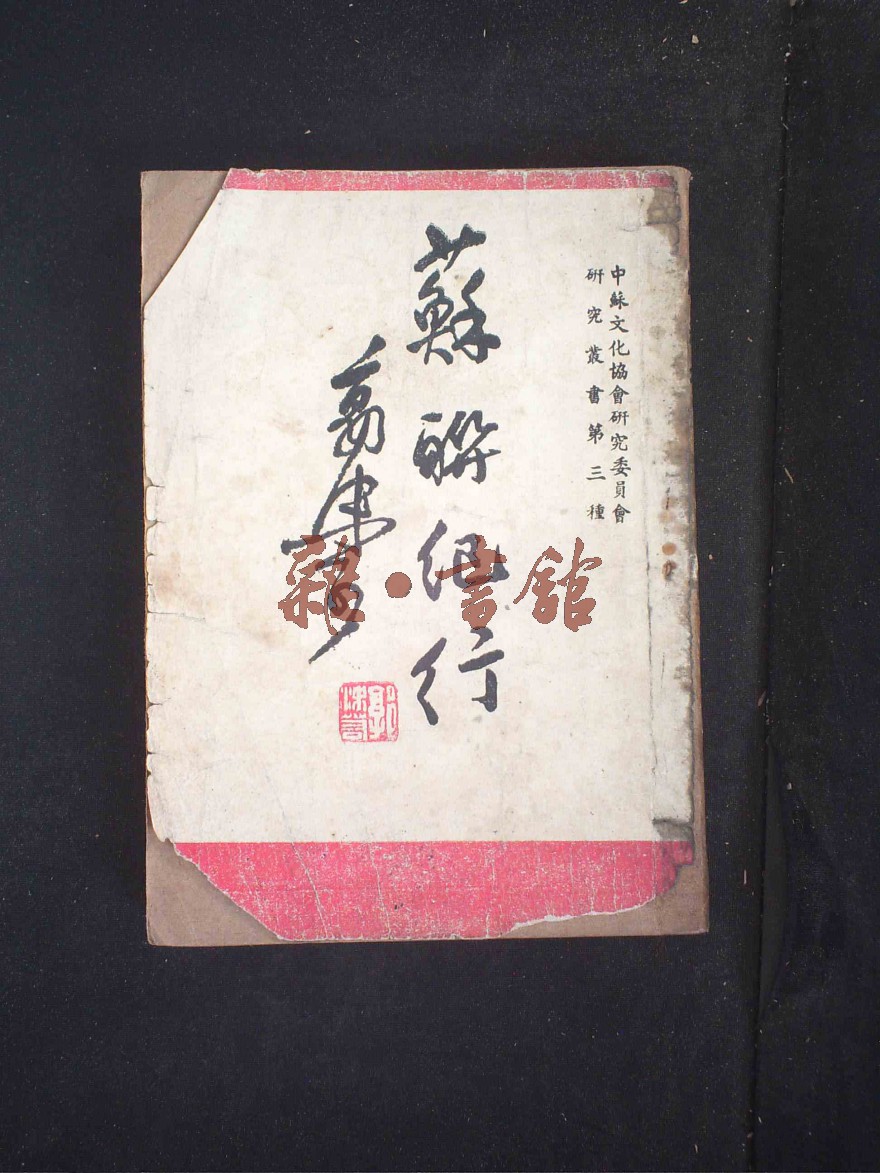 中蘇文化協會研究委員會
研究叢書第三種
蘇聯紀行
郭沫若
郭沫若
雜·書館